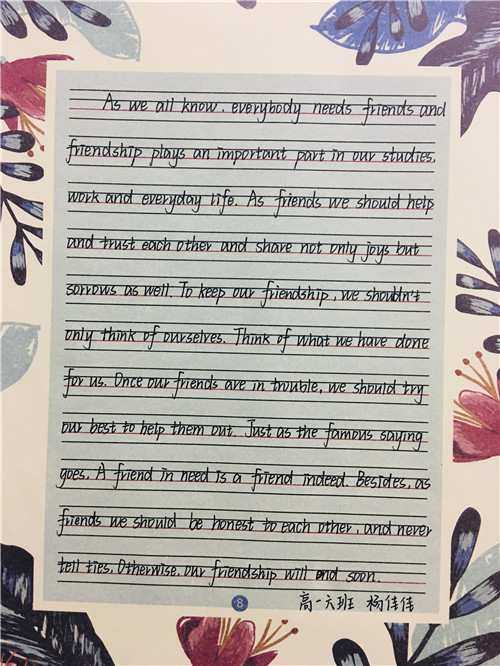 As we all know, everybody needs friends and
friendship plays an important part in our studies,
work and everyday life. As friends we should help
and trust each other and share not only joys but
sorrows as well. To keep our friendship, we shouldn't
only think of ourselves. Think of what we have done
for us. Once our friends are in trouble, we should try
our best to help them out. Just as the famous saying
goes, A friend in need is a friend indeed. Besides, as
friends we should be honest to each other, and never
tell ties. Otherwise, our friendship will end soon.
8
高一六班 杨佳佳